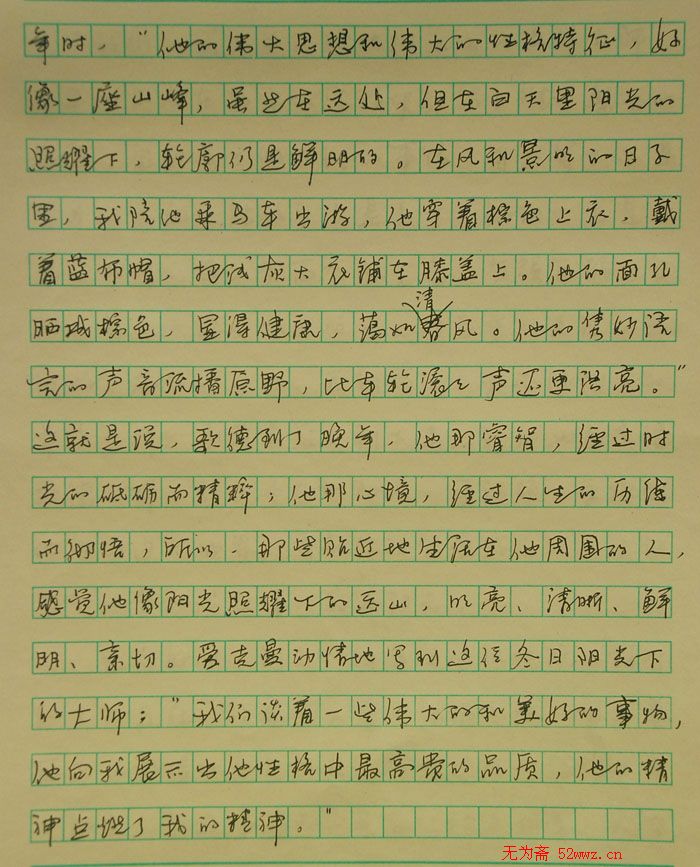 年时，“他的伟大思想和伟大的性格特征，好
像一座山峰，虽然在远处，但在白天里阳光的
照耀下，轮廓仍是鲜明的。在风和景明的日子
里，我陪他乘马车出游，他穿着棕色上衣，戴
着蓝布帽，把浅灰大衣铺在膝盖上。他的面孔
晒成棕色，显得健康，荡如清春风。他的隽妙语
言的声音流播原野，比车轮滚滚之声还更洪亮。”
这就是说，歌德到了晚年，他那睿智，经过时
光的砥砺而精粹；他那心境，经过人生的历练
而彻悟，所以，那些贴近地生活在他周围的人，
感觉他像阳光照耀下的远山，明亮、清晰、鲜
明、亲切。爱克曼动情地写到这位冬日阳光下
的大师：“我们谈着一些伟大的和美好的事物，
他向我展示出他性格中最高贵的品质，他的精
神点燃了我的精神。”
无为斋 52wwz.cn